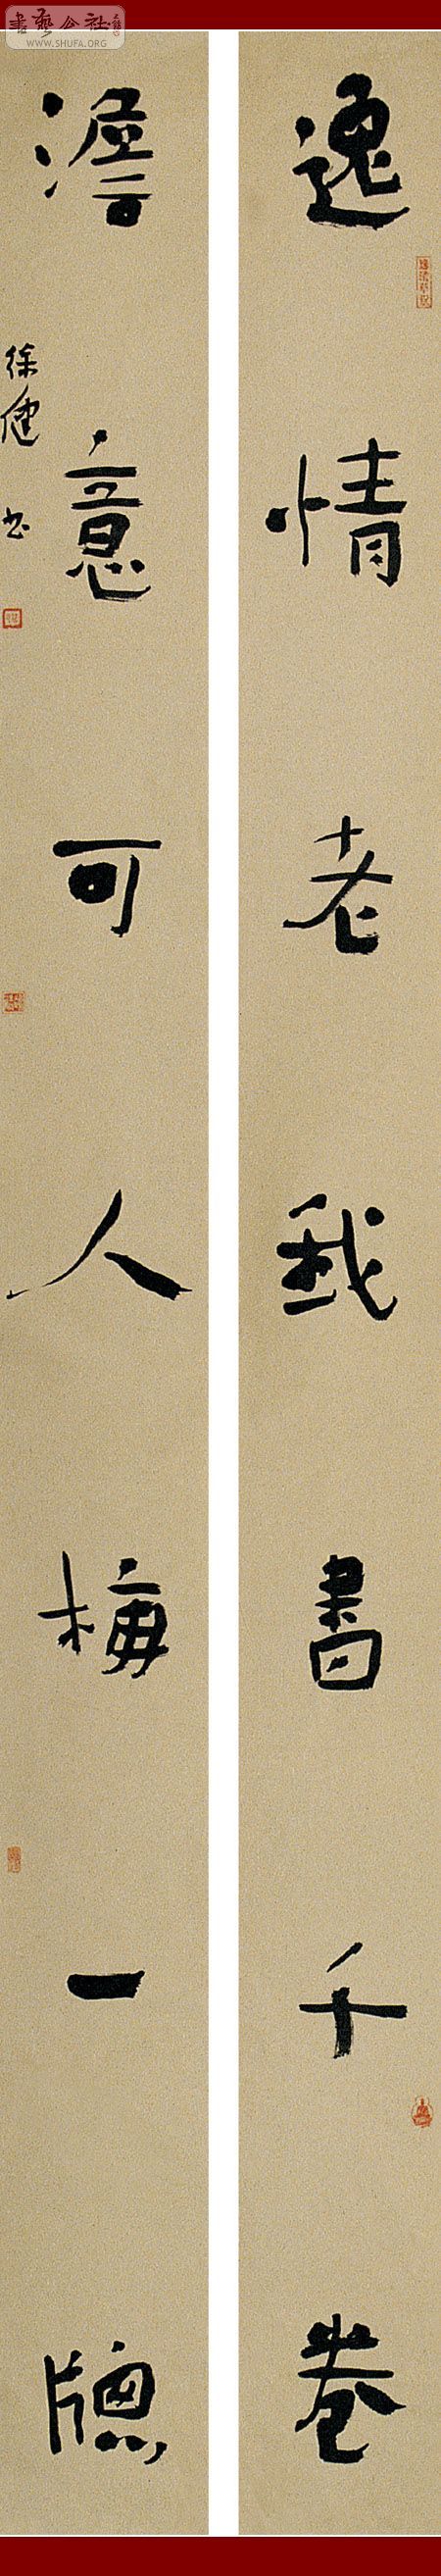 書藝公社
WWW.SHUFA.ORG
逸情老我書千卷
澹意可人梅一牕
徐健書